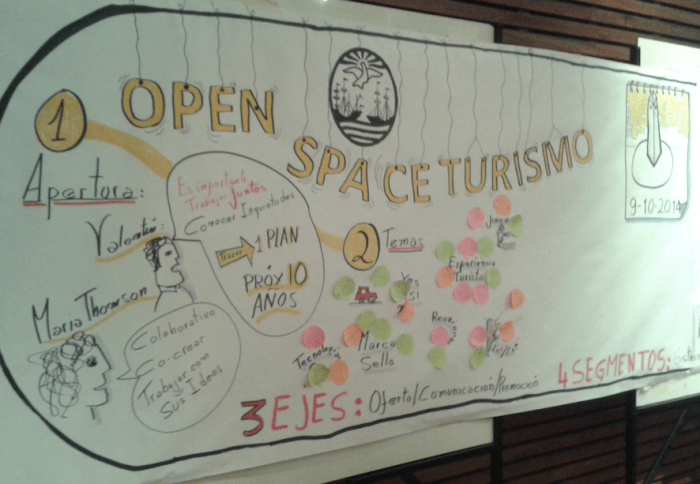 OPEN
SPACE TURISMO
9-10-2014
1
Apertura:
Valentín:
Es importante
Trabajar Juntos
Conocer Inquietudes
Trazar 1 PLAN
PRÓX 10
AÑOS
Maria Thomson
Colaborativo
Co-crear
Trabajar com
Sus Ideas
2
Temas
Experiencia
Turista
Marca
Sello
Tecnología
3 EJES: Oferta/Comunicación/Promoción
4 SEGMENTOS: